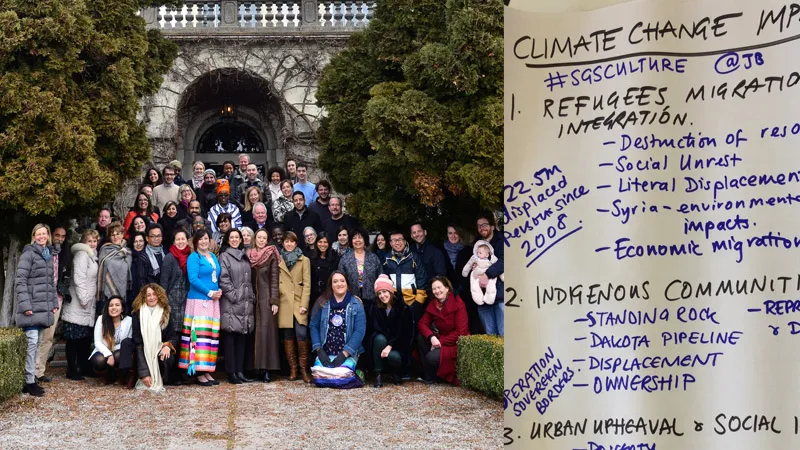 CLIMATE CHANGE IMP
#SGSCULTURE @JB
1. REFUGEES MIGRATIO
INTEGRATION.
- Destruction of reso
- Social Unrest
- Literal Displacemen
- Syria - environmenta
impacts.
- Economic migration
22.5M
displaced
Persons since
2008.
2. INDIGENOUS COMMUNITI
- STANDING ROCK
- REPAR
- DAKOTA PIPELINE
- DISPLACEMENT
- OWNERSHIP
OPERATION
SOVEREIGN
BORDERS
3. URBAN UPHEAVAL & SOCIAL I
- POVERTY